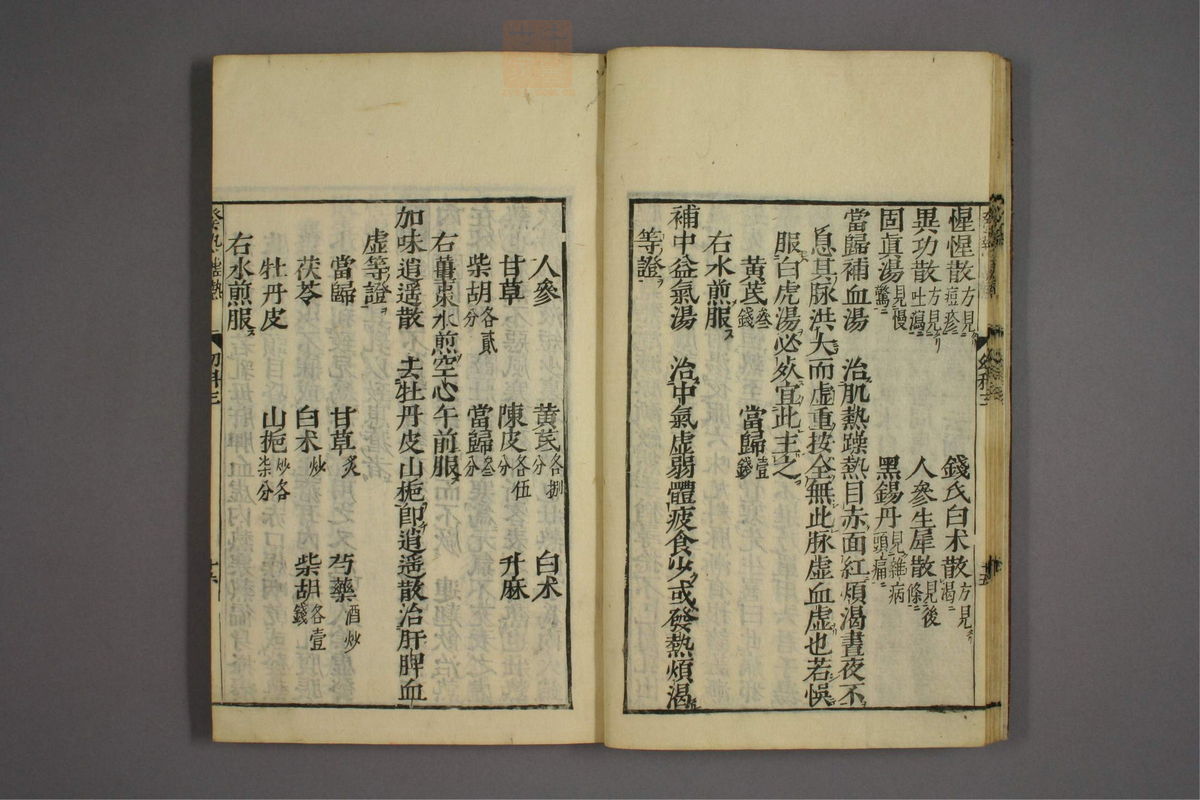 惺惺散方見痘疹 錢氏白朮散方見渴
異功散方見吐瀉 人參生犀散見後條
固眞湯見慢驚 黑錫丹見雜病頭痛
當歸補血湯 治肌熱躁熱目赤面紅煩渴晝夜不
息其脉洪大而虛重按全無此脉虛血虛也若悞
服白虎湯必死宜此主之
黃芪叁錢 當歸壹錢
右水煎服
補中益氣湯 治中氣虛弱體疲食少或發熱煩渴
等證
人參 黃芪各捌分 白朮
甘草 陳皮各伍分 升麻
柴胡各貳分 當歸叁分
右薑棗水煎空心午前服
加味逍遥散 去牡丹皮山梔卽逍遥散治肝脾血
虛等證
當歸 甘草炙 芍藥酒炒
茯苓 白朮炒 柴胡各壹錢
牡丹皮 山梔炒各柒分
右水煎服